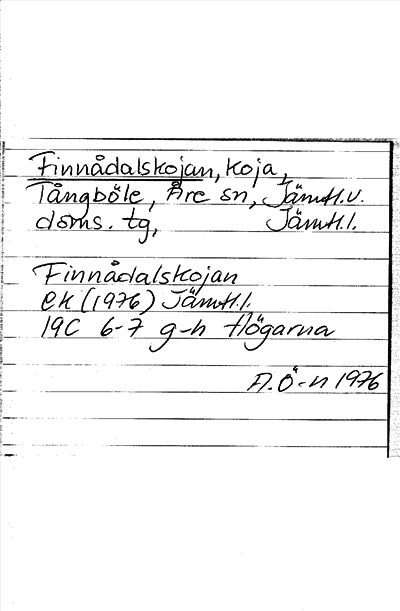 Finnådalskojan, koja,
Tångböle, Åre sn, Jämtl.v.
doms. tg, Jämtl.l.
Finnådalskojan
ek (1976) Jämtl.l.
19C 6-7 g-h flögarna
A.Ö-n 1976